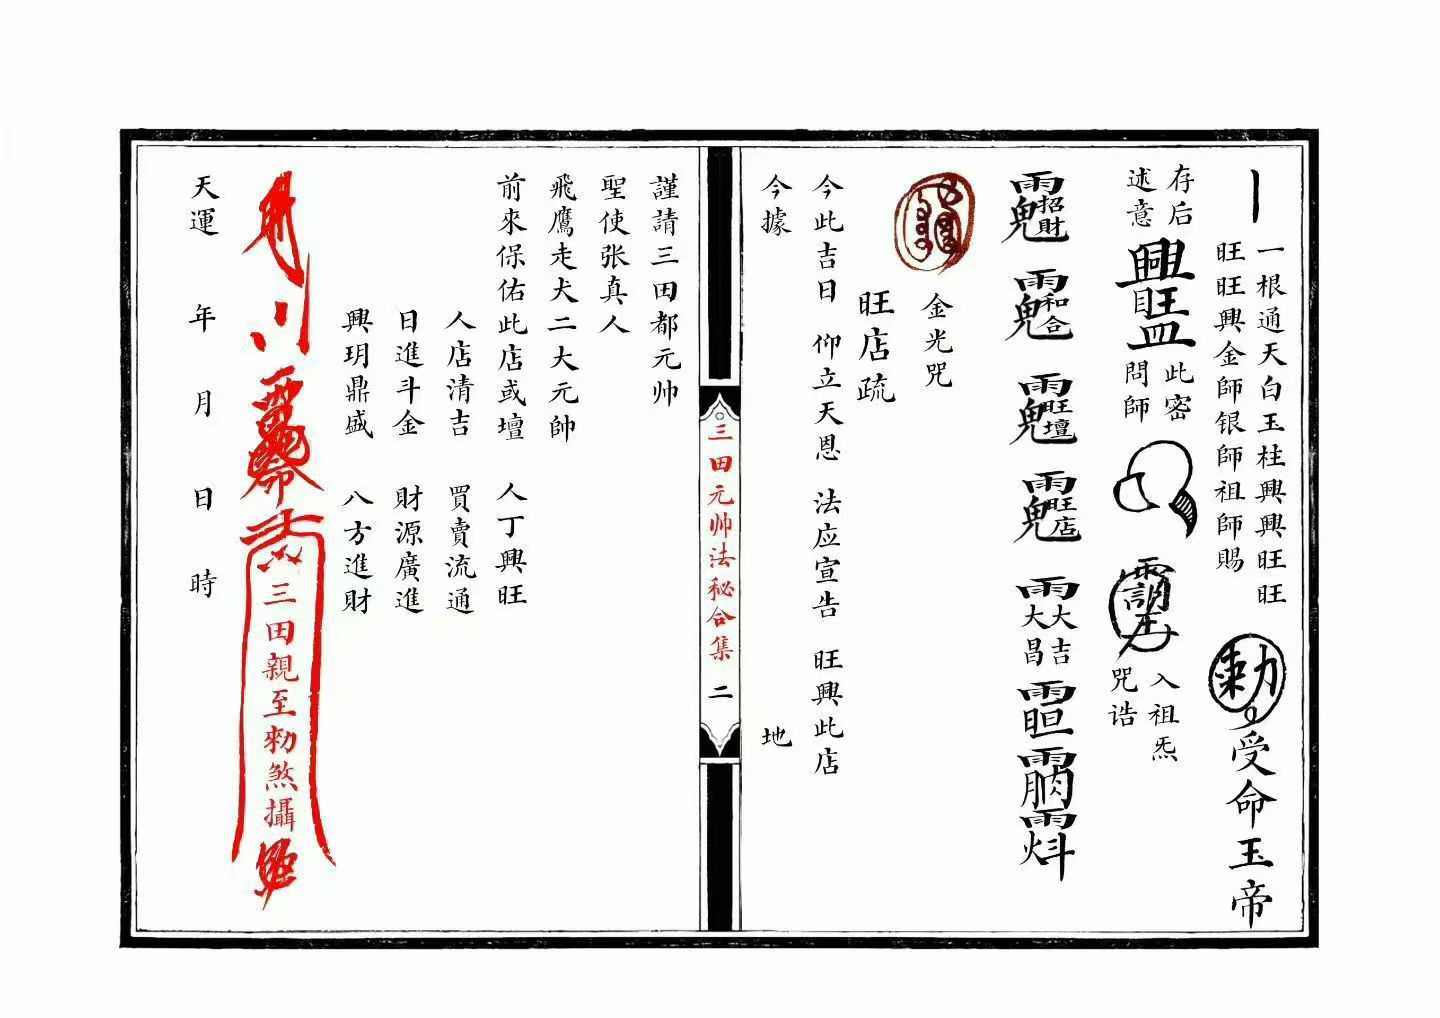 一根通天白玉柱興興旺旺
旺旺興金師银師祖師賜
勅
受命玉帝
存后
述意
興旺
此密
問師
入祖炁
咒诰
招財
和合
旺壇
旺店
大吉
大昌
金光咒
旺店疏
今此吉日 仰立天恩 法应宣告 旺興此店
今據 地
三田元帅法秘合集 二
謹請三田都元帅
聖使张真人
飛鷹走犬二大元帥
前來保佑此店或壇 人丁興旺
人店清吉 買賣流通
日進斗金 財源廣進
興玥鼎盛 八方進財
三田親至勑煞攝
天運 年 月 日 時